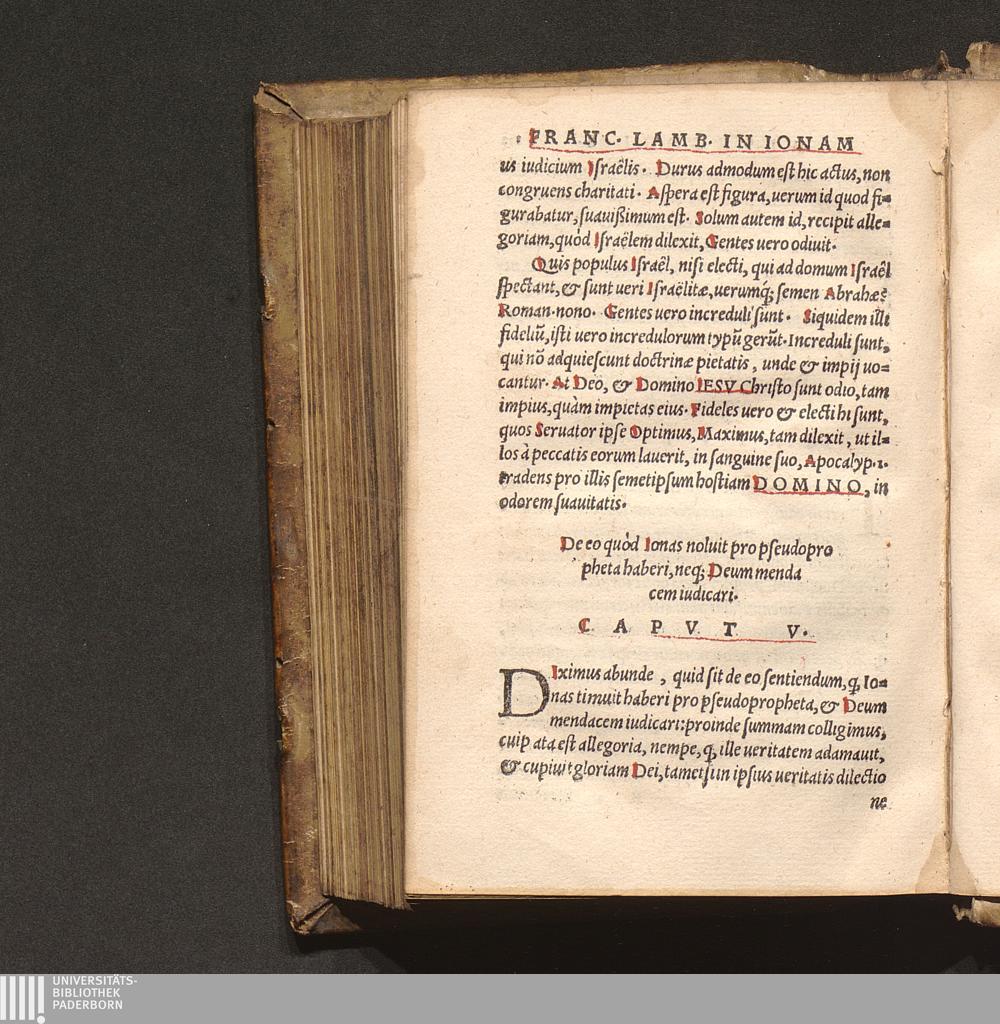 FRANC. LAMB. IN IONAM
us iudicium Israëlis. Durus admodum est hic actus, non
congruens charitati. Aspera est figura, uerum id quod fi=
gurabatur, suauißimum est. Solum autem id, recipit alle=
goriam, quòd Israëlem dilexit, Gentes uero odiuit.
Quis populus Israël, nisi electi, qui ad domum Israël
spectant, & sunt ueri Israëlitæ, uerumq; semen Abrahæ?
Roman. nono. Gentes uero increduli sunt. Siquidem illi
fideliū, isti uero incredulorum typū gerūt. Increduli sunt,
qui nō adquiescunt doctrinæ pietatis, unde & impij uo=
cantur. At Deo, & Domino IESV Christo sunt odio, tam
impius, quàm impietas eius. Fideles uero & electi hi sunt,
quos Seruator ipse Optimus, Maximus, tam dilexit, ut il=
los à peccatis eorum lauerit, in sanguine suo, Apocalyp. 1.
tradens pro illis semetipsum hostiam DOMINO, in
odorem suauitatis.
De eo quòd Ionas noluit pro pseudopro
pheta haberi, neq; Deum menda
cem iudicari.
CAPVT V.
DIximus abunde, quid sit de eo sentiendum, q̧ Io=
nas timuit haberi pro pseudopropheta, & Deum
mendacem iudicari: proinde summam colligimus,
cuip ata est allegoria, nempe, q̧ ille ueritatem adamauit,
& cupiuit gloriam Dei, tametsi in ipsius ueritatis dilectio
ne
UNIVERSITÄTS-
BIBLIOTHEK
PADERBORN